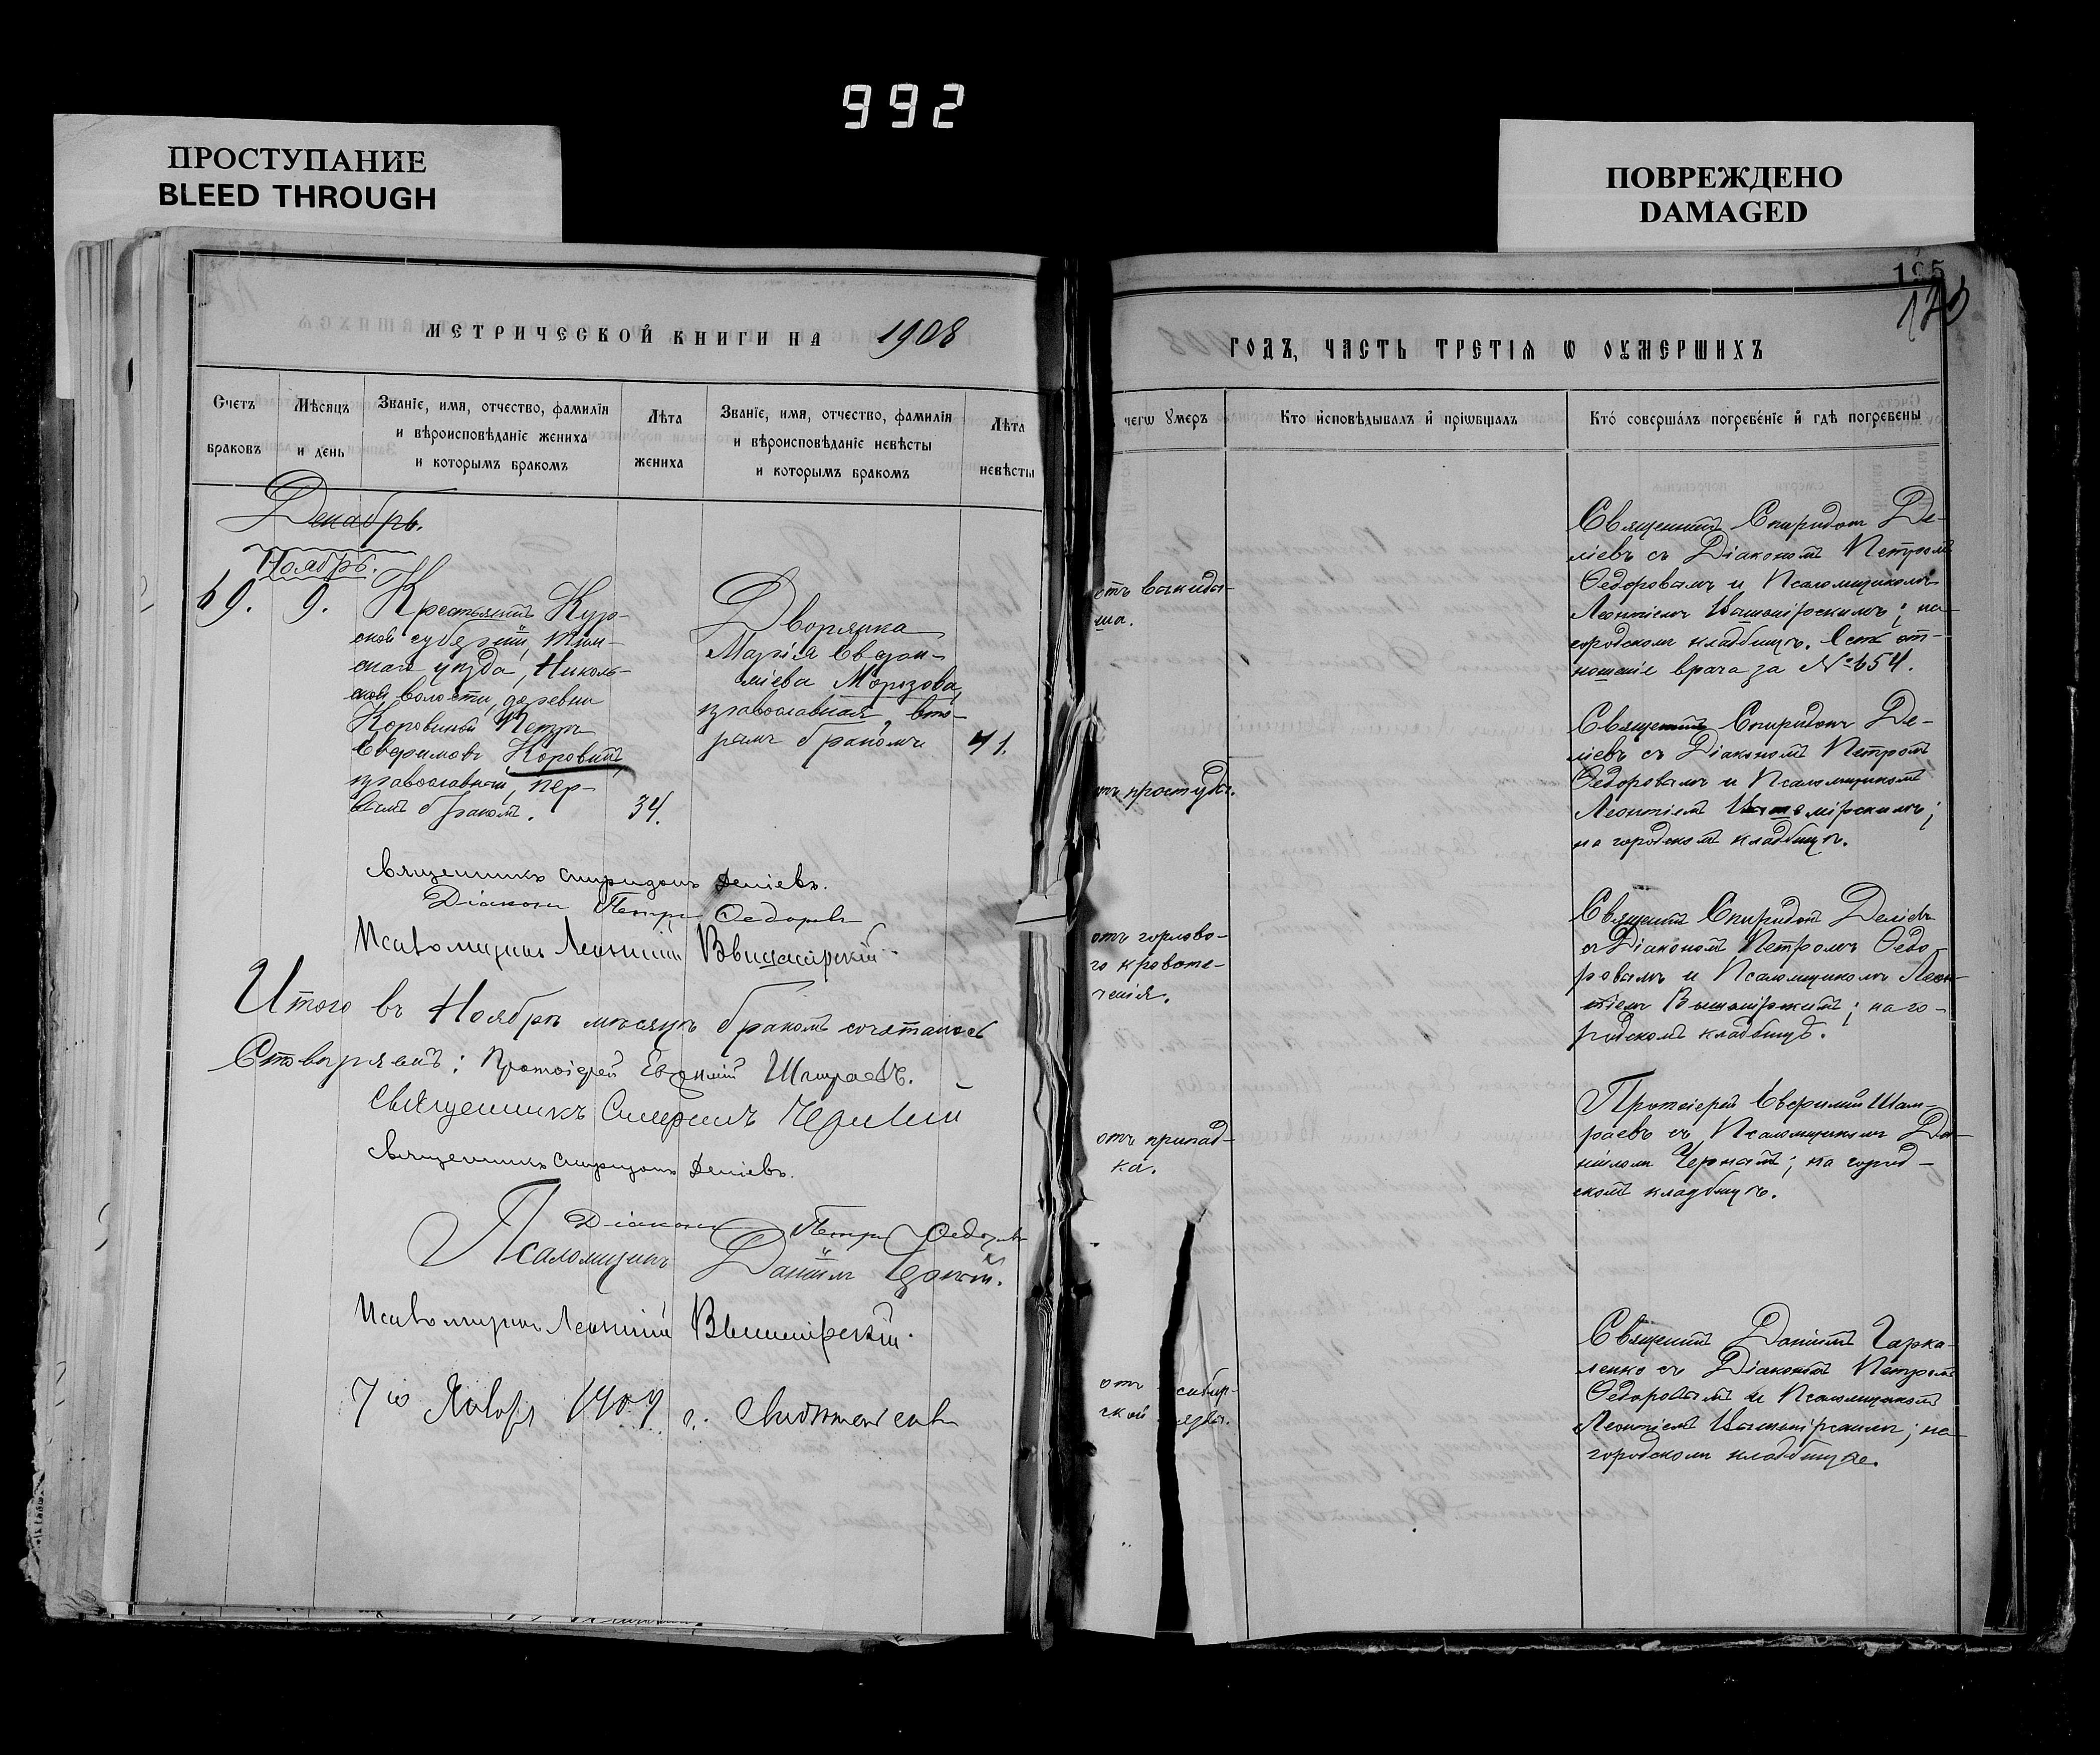 992
ПРОСТУПАНИЕ
BLEED THROUGH
ПОВРЕЖДЕНО
DAMAGED
МЕТРИЧЕСКОЙ КНИГИ НА 1908
Счетъ браковъ
Мѣсяцъ и день
Званіе, имя, отчество, фамилія
и вѣроисповѣданіе жениха
и которымъ бракомъ
Лѣта
жениха
Званіе, имя, отчество, фамилія
и вѣроисповѣданіе невѣсты
и которымъ бракомъ
Лѣта
невѣсты
Декабрь.
Ноябрь.
69. 9.
Крестьянинъ Кур-
ской губерніи, Тим-
скаго уѣзда, Николь-
ской волости, деревни
Коровиной Петръ
Евфимовъ Коровинъ,
православный, пер-
вымъ бракомъ.
34.
Дворянка
Марія Евфи-
міева Морозова,
православная, вто-
рымъ бракомъ
41.
Священникъ Спиридонъ Деліевъ.
Діаконъ Петръ Ѳедоровъ
Псаломщикъ Леонтій Вышемірскій.
Итого въ Ноябрѣ мѣсяцѣ бракомъ сочеталось
Протоіерей Евфимій Шмраевъ.
Священникъ Черный
Священникъ Спиридонъ Деліевъ.
Діаконъ Петръ Ѳедоровъ
Псаломщикъ Даніилъ Чорній.
Псаломщикъ Леонтій Вышемірскій.
1909 г.
195
ГОДЪ, ЧАСТЬ ТРЕТІѦ Ѡ ОУМЕРШИХЪ
чегѡ ᲂумеръ
Кто исповѣдывалъ и прiѡбщалъ
Кто совершалъ погребенiе и гдѣ погребены
отъ выкиды-
ша.
Священникъ Спиридонъ Де-
ліевъ съ Діакономъ Петромъ
Ѳедоровымъ и Псаломщикомъ
Леонтіемъ Вышемірскимъ; на
городскомъ кладбищѣ. Есть от-
ношеніе врача за № 654.
отъ простуды.
Священникъ Спиридонъ Де-
ліевъ съ Діакономъ Петромъ
Ѳедоровымъ и Псаломщикомъ
Леонтіемъ Вышемірскимъ;
на городскомъ кладбищѣ.
отъ горлово-
го кровоте-
ченія.
Священникъ Спиридонъ Деліевъ
съ Діакономъ Петромъ Ѳедо-
ровымъ и Псаломщикомъ Леон-
тіемъ Вышемірскимъ; на го-
родскомъ кладбищѣ.
отъ припад-
ка.
Протоіерей Евфимій Шам-
раевъ съ Псаломщикомъ Да-
ніиломъ Чернымъ; на город-
скомъ кладбищѣ.
отъ сибир-
ской язвы.
Священникъ Даніилъ Гарка-
ленко съ Діакономъ Петромъ
Ѳедоровымъ и Псаломщикомъ
Леонтіемъ Вышемірскимъ; на
городскомъ кладбищѣ.